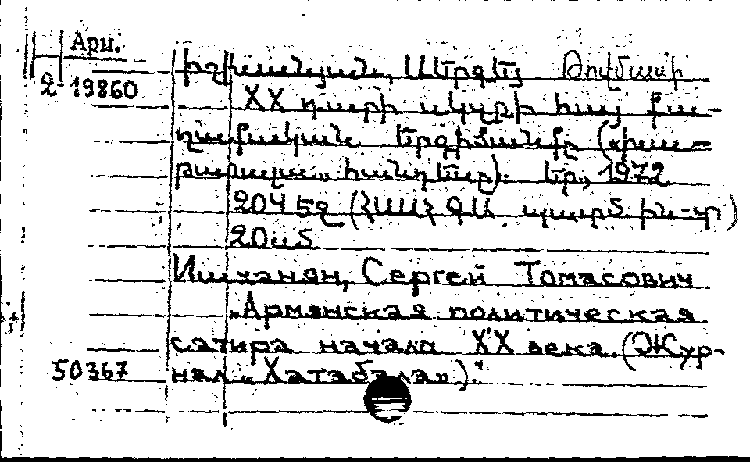 Арм.
2-19860
Իշխանյան, Սերգեյ Թովմասի
XX դարի սկզբի հայ քա-
ղաքական երգիծանքը («խա-
թաբալա» հանդեսը): Եր., 1972
204 էջ (ՀՍՍՀ ԳԱ պատմ. ին-տ)
20սմ
Ишханян, Сергей Томасович
„Армянская политическая
сатира начала XX века. (Жур-
50367 нал „Хатабала»)."